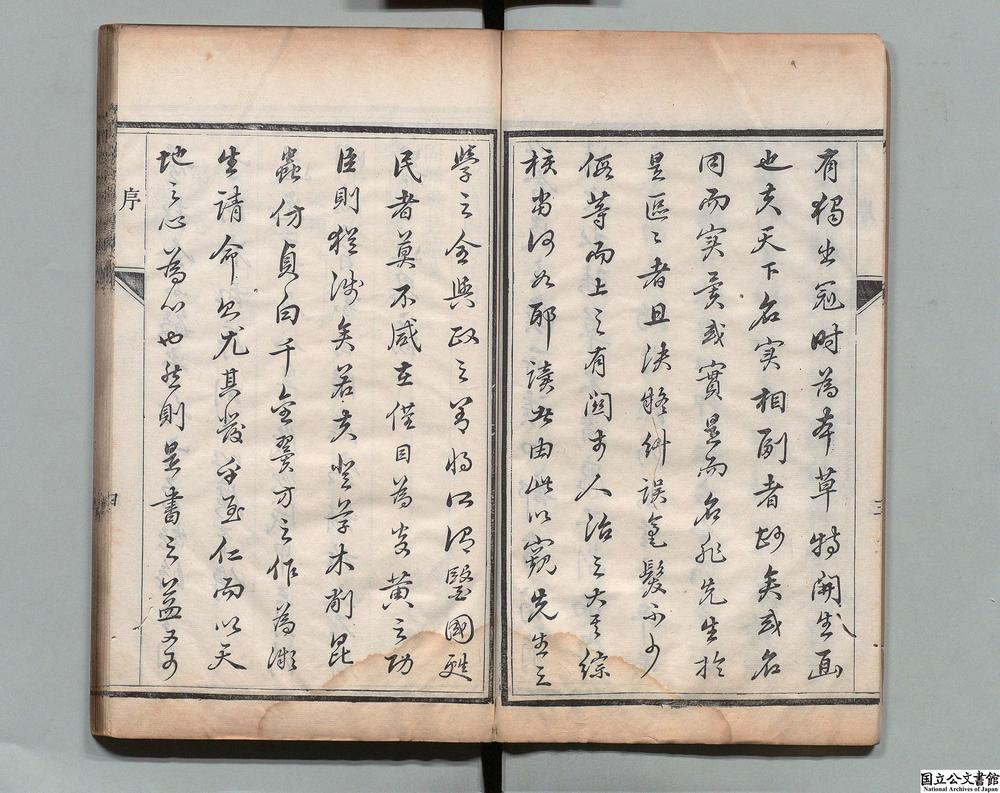 有獨出冠時為本草特開生面
也夫天下名實相副者尠矣或名
同而實異或實是而名非先生於
是區〻者且決疑糾誤毫髮不少
假等而上之有關於人治之大其綜
核當何如耶讀者由此以窺先生之
學之全與政之善將所謂醫國甦
民者莫不咸在僅目為炎黃之功
臣則猶淺矣若夫登草木削昆
蟲仿貞白千金翼方之作為瀕
生請命不尤其發乎至仁而以天
地之心為心也然則是書之益又可
序
三
四
国立公文書館
National Archives of Japan